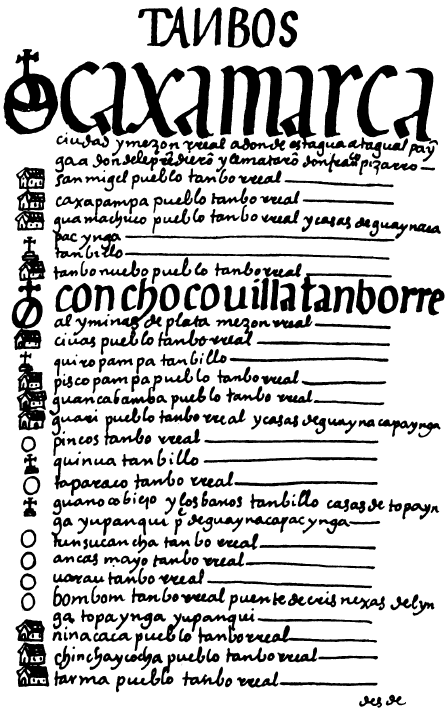 TANBOS
caxamarca
ciudad y mezon rreal adonde estaua atagualpa yn
ga adon dele prẽdierõ y le mataron don franco pizarro
san migel pueblo tanbo rreal
caxapampa pueblo tanbo rreal
guamachuco pueblo tanbo rreal y casas de guaynaca
pac ynga
tanbillo
tanbo nuebo pueblo tanbo rreal
conchocouilla tanborre
al y minas de plata mezon rreal
ciuas pueblo tanbo rreal
quiro pampa tanbillo
pisco pampa pueblo tanbo rreal
guancabamba pueblo tanbo rreal
guari pueblo tanbo rreal y casas de guaynacapaynga
pincos tanbo rreal
quinua tanbillo
taparaco tanbo rreal
guano abiejo y los banos tanbillo casas de topayn
ga yupanqui p̃ de guaynacapac ynga
tunsucancha tanbo rreal
ancas mayo tanbo rreal
uarau tanbo rreal
bombom tanbo rreal puente de cris nexas del yn
ga topa ynga yupanqui
ninacaca pueblo tanbo rreal
chinchaycocha pueblo tanbo rreal
tarma pueblo tanbo rreal
desde